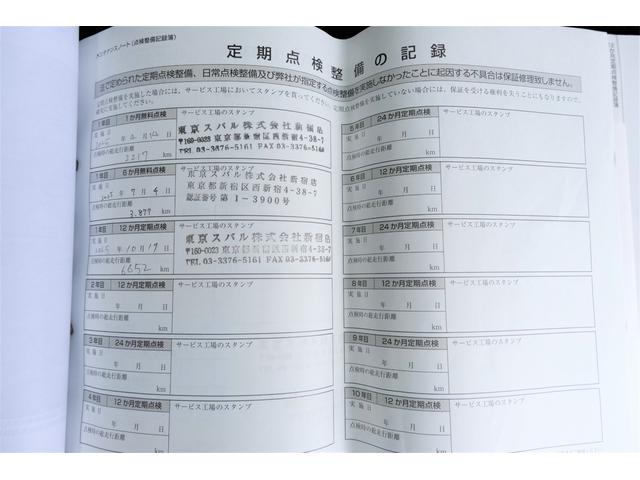 メンテナンスノート(点検整備記録簿)
定期点検整備の記録
法で定められた定期点検整備、日常点検整備及び弊社が指定する点検整備を実施しなかったことに起因する不具合は保証修理致しません。
定期点検整備を実施した場合には、サービス工場においてスタンプを貰ってください。定期点検整備を実施していない場合には、保証を受ける権利を失うこともになりますので、
確実に実施してください。
1か月無料点検 サービス工場のスタンプ
実施日
年 月 日
点検時の総走行距離
2217 km
東京スバル株式会社新宿店
〒160-0023 東京都新宿区西新宿4-38-7
TEL 03-3376-5161 FAX 03-3376-5164
6か月無料点検 サービス工場のスタンプ
実施日
年 7月 4日
点検時の総走行距離
3,877 km
東京スバル株式会社新宿店
東京都新宿区西新宿4-38-7
認証番号 第1-3900号
1年目 12か月定期点検 サービス工場のスタンプ
実施日
年 10月 19日
点検時の総走行距離
6652 km
東京スバル株式会社新宿店
〒160-0023 東京都新宿区西新宿4-38-7
TEL 03-3376-5161 FAX 03-3376-5164
2年目 12か月定期点検 サービス工場のスタンプ
実施日
年 月 日
点検時の総走行距離
km
3年目 24か月定期点検 サービス工場のスタンプ
実施日
年 月 日
点検時の総走行距離
km
4年目 12か月定期点検 サービス工場のスタンプ
実施日
年 月 日
点検時の総走行距離
km
5年目 24か月定期点検 サービス工場のスタンプ
実施日
年 月 日
点検時の総走行距離
km
6年目 12か月定期点検 サービス工場のスタンプ
実施日
年 月 日
点検時の総走行距離
km
7年目 24か月定期点検 サービス工場のスタンプ
実施日
年 月 日
点検時の総走行距離
km
8年目 12か月定期点検 サービス工場のスタンプ
実施日
年 月 日
点検時の総走行距離
km
9年目 24か月定期点検 サービス工場のスタンプ
実施日
年 月 日
点検時の総走行距離
km
10年目 12か月定期点検 サービス工場のスタンプ
実施日
年 月 日
点検時の総走行距離
km